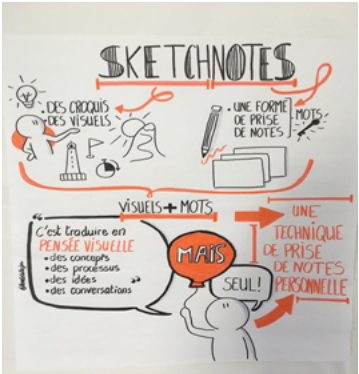 SKETCHNOTES
• DES CROQUIS
• DES VISUELS
• UNE FORME
DE PRISE
DE NOTES
MOTS
VISUELS + MOTS
C'est traduire en
PENSÉE VISUELLE
• des concepts
• des processus
• des idées
• des conversations
MAIS
SEUL!
UNE
TECHNIQUE
DE PRISE
DE NOTES
PERSONNELLE